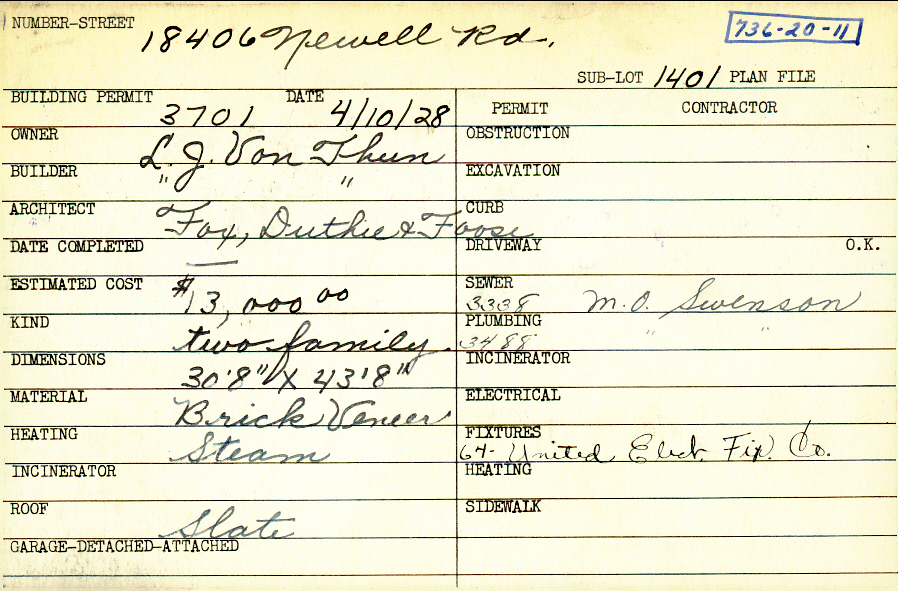 NUMBER-STREET 18406 Newell Rd. 736-20-11
SUB-LOT 1401 PLAN FILE
BUILDING PERMIT 3701 DATE 4/10/28
PERMIT CONTRACTOR
OWNER L. J. Von Thun
OBSTRUCTION
BUILDER " "
EXCAVATION
ARCHITECT Fox, Duthie & Foose
CURB
DATE COMPLETED —
DRIVEWAY O.K.
ESTIMATED COST $13,000 00
SEWER 3338 M.O. Swenson
KIND two family.
PLUMBING 3488 " "
DIMENSIONS 30'8" X 43'8"
INCINERATOR
MATERIAL Brick Veneer
ELECTRICAL
HEATING Steam
FIXTURES 64- United Elect. Fix. Co.
INCINERATOR
HEATING
ROOF Slate
SIDEWALK
GARAGE-DETACHED-ATTACHED